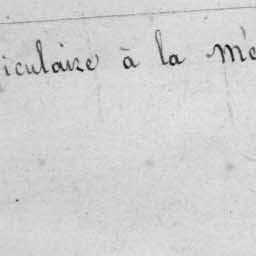 iculaire à la mé